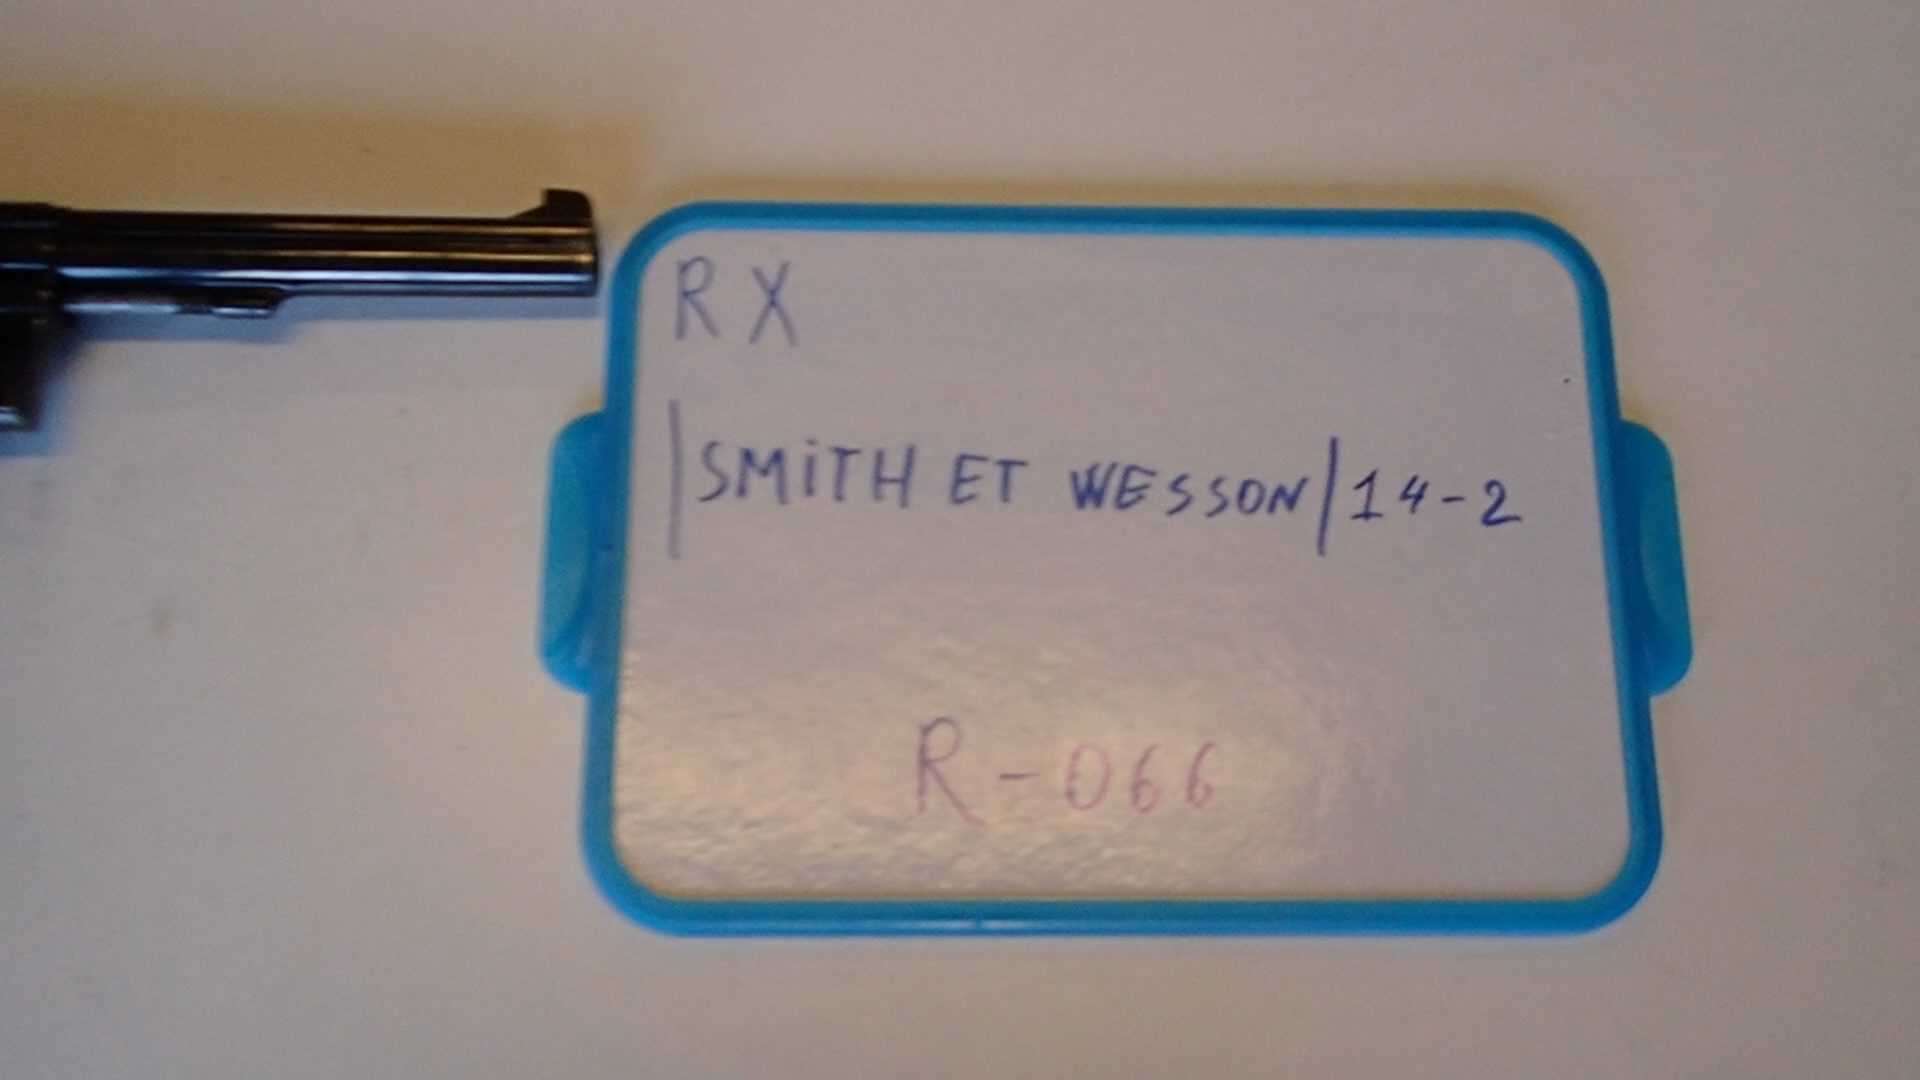 R X
|SMiTH ET WESSON/14-2
R-066